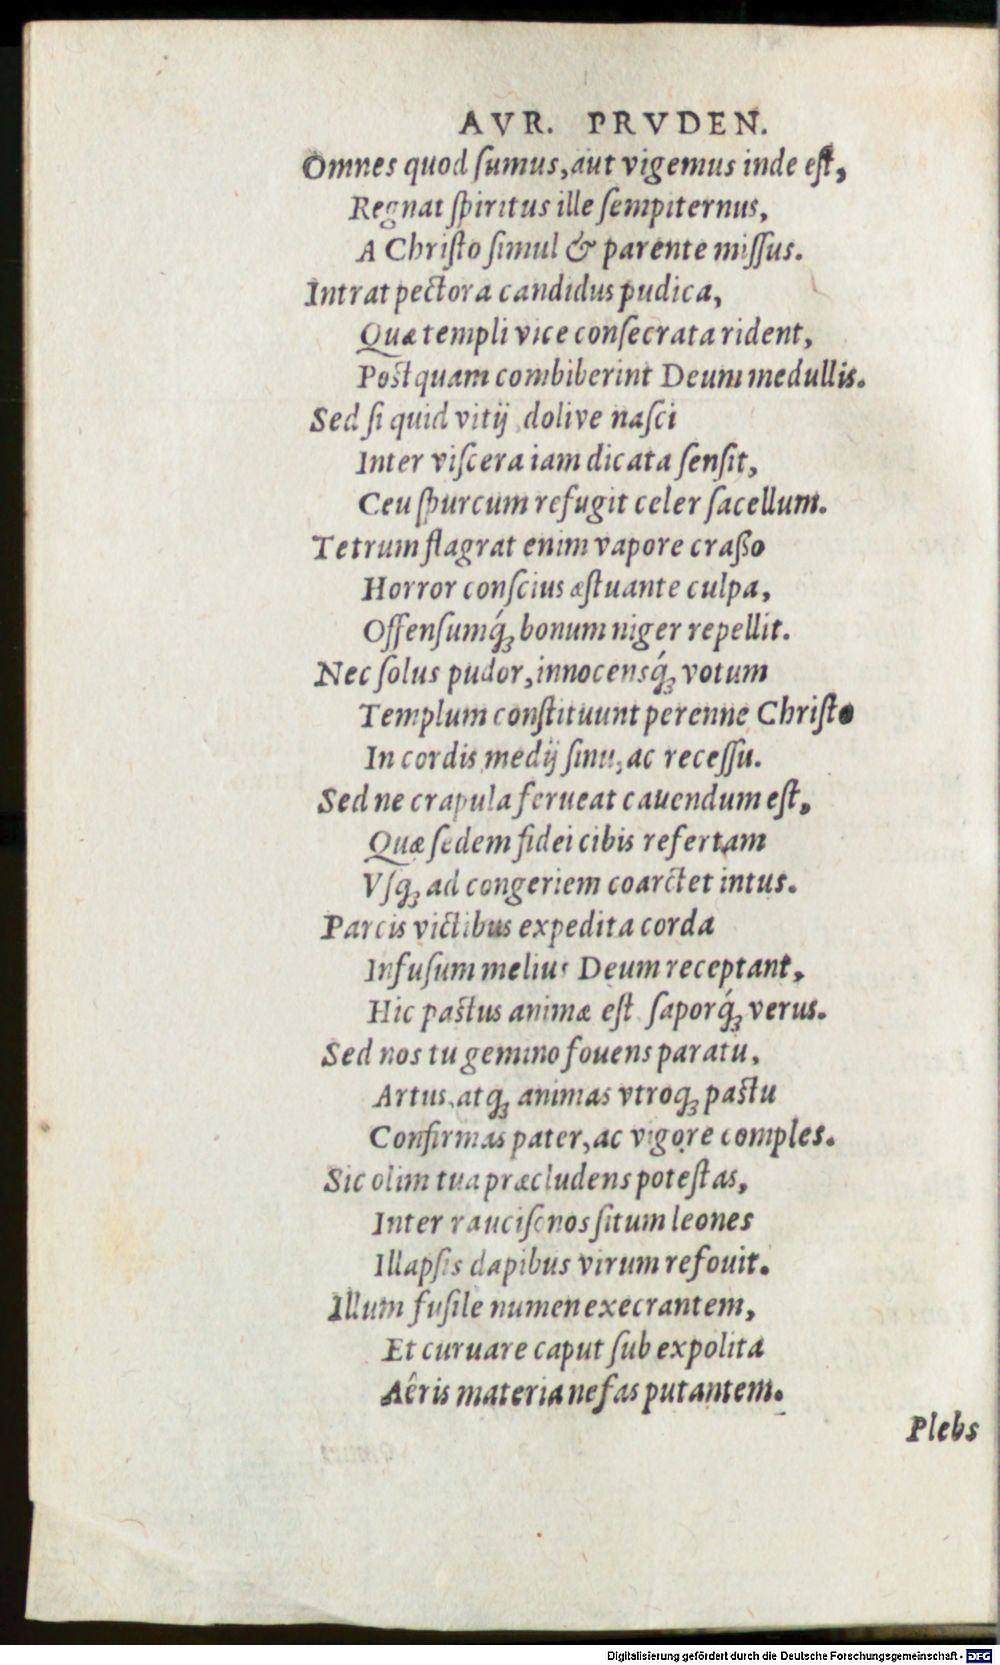 AVR. PRVDEN.
Omnes quod ſumus, aut vigemus inde eſt,
Regnat ſpiritus ille ſempiternus,
A Chriſto ſimul & parente miſſus.
Intrat pectora candidus pudica,
Quæ templi vice conſecrata rident,
Postquam combiberint Deum medullis.
Sed ſi quid vitij dolive naſci
Inter viſcera iam dicata ſenſit,
Ceu ſpurcum refugit celer ſacellum.
Tetrum flagrat enim vapore craßo
Horror conſcius æſtuante culpa,
Offenſumq́ꝫ bonum niger repellit.
Nec ſolus pudor, innocensq́ꝫ votum
Templum conſtituunt perenne Chriſto
In cordis medij ſinu, ac receſſu.
Sed ne crapula ferueat cauendum eſt,
Quæ ſedem fidei cibis refertam
Vſqꝫ ad congeriem coarctet intus.
Parcis victibus expedita corda
Infuſum melius Deum receptant,
Hic pastus animæ eſt ſaporq́ꝫ verus.
Sed nos tu gemino fouens paratu,
Artus, atqꝫ animas vtroqꝫ pastu
Confirmas pater, ac vigore comples.
Sic olim tua præcludens poteſtas,
Inter rauciſonos ſitum leones
Illapſis dapibus virum refouit.
Illum fuſile numen execrantem,
Et curuare caput ſub expolita
Aêris materia nefas putantem.
Plebs
Digitalisierung gefördert durch die Deutsche Forschungsgemeinschaft - DFG